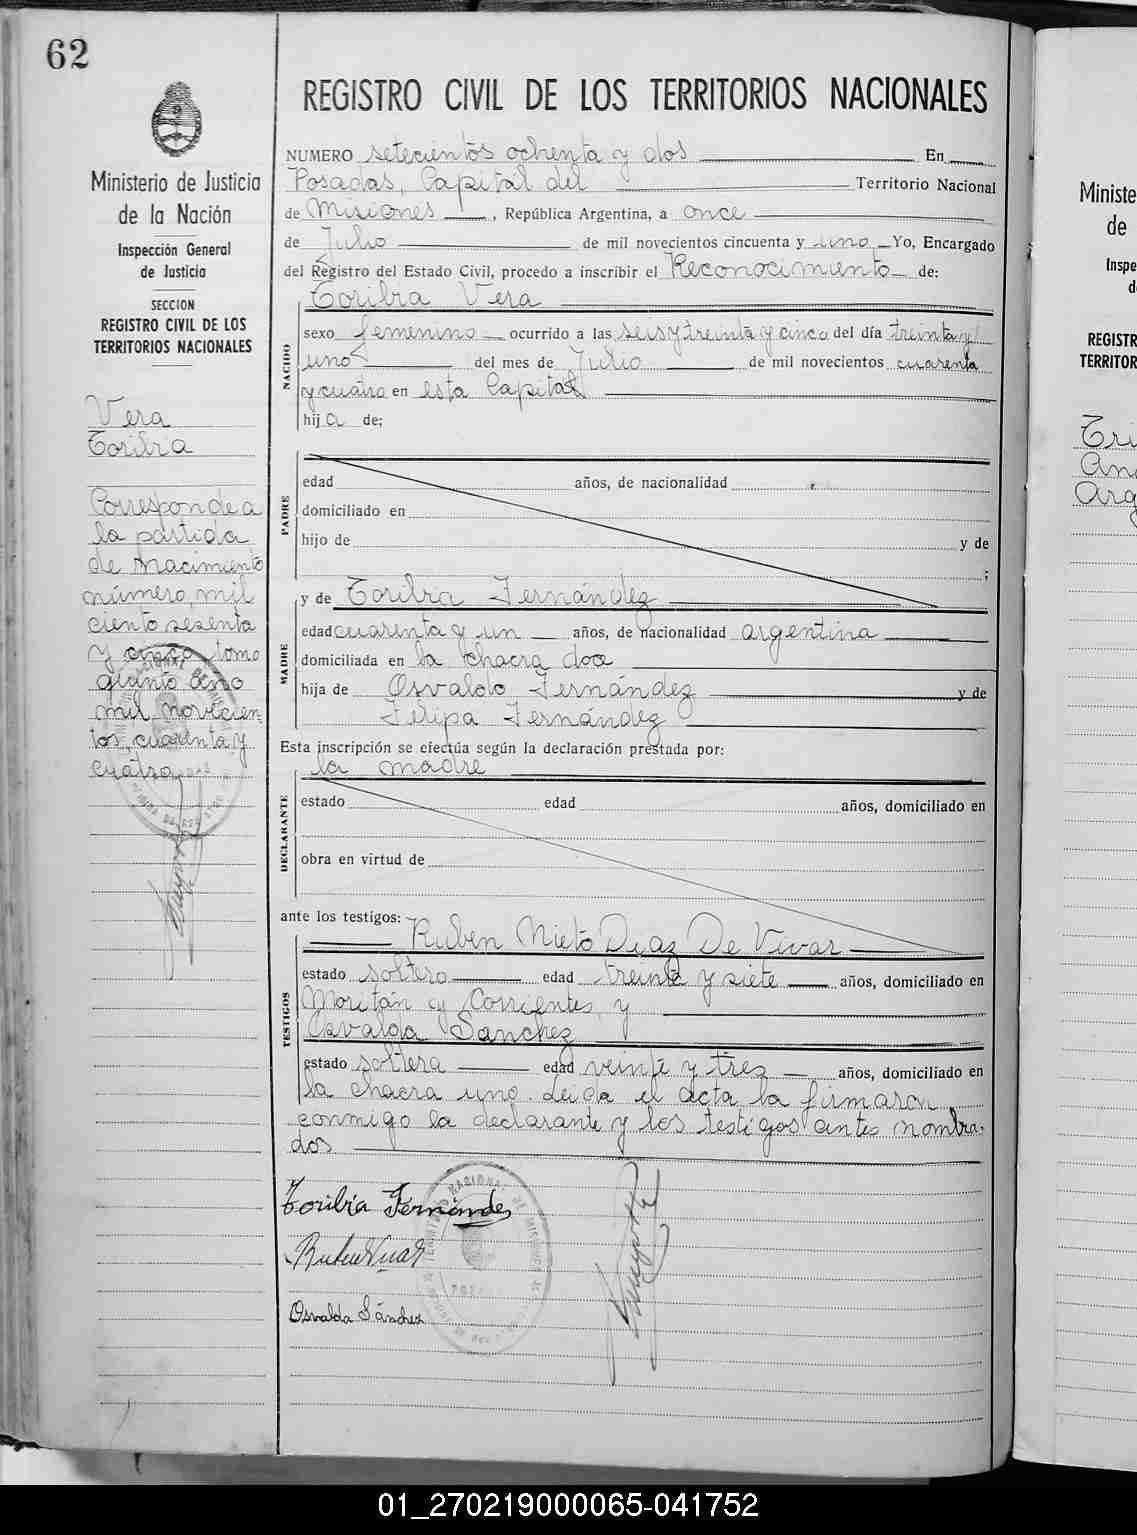 62
Ministerio de Justicia
de la Nación
Inspección General
de Justicia
SECCION
REGISTRO CIVIL DE LOS
TERRITORIOS NACIONALES
Vera
Toribia
Corresponde a
la partida
de nacimiento
número, mil
ciento sesenta
y cinco tomo
quinto año
mil novecien
tos, cuarenta y
cuatro
REGISTRO CIVIL DE LOS TERRITORIOS NACIONALES
NUMERO setecientos ochenta y dos En
Posadas, Capital del Territorio Nacional
de Misiones, República Argentina, a once
de Julio de mil novecientos cincuenta y uno Yo, Encargado
del Registro del Estado Civil, procedo a inscribir el Reconocimiento de:
Toribia Vera
NACIDO
sexo femenino ocurrido a las seis y treinta y cinco del día treinta y
uno del mes de Julio de mil novecientos cuarenta
y cuatro en esta Capital
hija de;
PADRE
edad años, de nacionalidad
domiciliado en
hijo de y de
;
y de Toribia Fernández
MADRE
edad cuarenta y un años, de nacionalidad argentina
domiciliada en la chacra doce
hija de Osvaldo Fernández y de
Felipa Fernández
Esta inscripción se efectúa según la declaración prestada por:
la madre
DECLARANTE
estado edad años, domiciliado en
obra en virtud de
ante los testigos:
Ruben Nieto Diaz De Vivar
TESTIGOS
estado soltero edad treinta y siete años, domiciliado en
Moritán y Corrientes, y
Osvalda Sanchez
estado soltera edad veinte y tres años, domiciliado en
la chacra uno. Leida el acta la firmaron
conmigo la declarante y los testigos antes nombra-
dos
Toribia Fernández
Osvalda Sánchez
Ministe
de
Inspe
d
REGISTR
TERRITOR
Tri
An
Arg
01_270219000065-041752